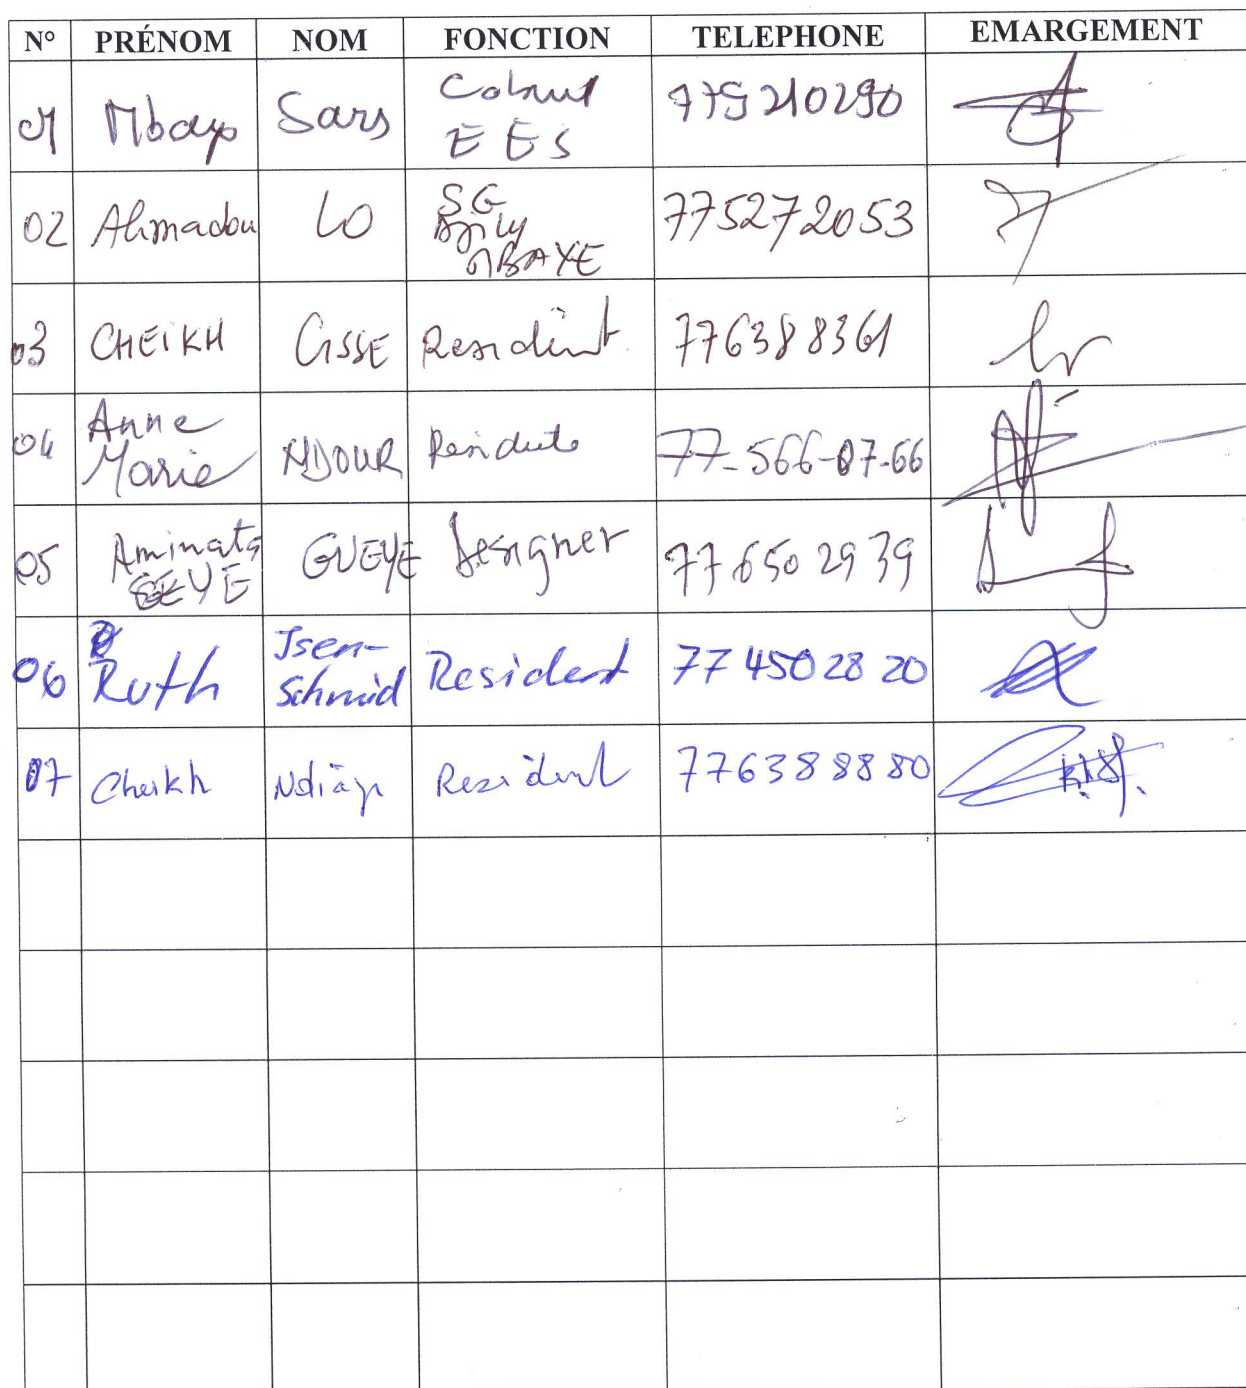 N° PRÉNOM NOM FONCTION TELEPHONE EMARGEMENT
01 Mbaye Sars 779210290
EES
02 Ahmadou LO SG 775272053
MBAYE
03 CHEIKH CISSE Resident 776388361
04 Anne Marie NDOUR Residente 77-566-07-66
05 Aminata SEYE GUEYE Designer 77 650 29 39
06 Ruth Isen-Schmid Resident 77 450 28 20
07 Cheikh Ndiaye Resident 776388880